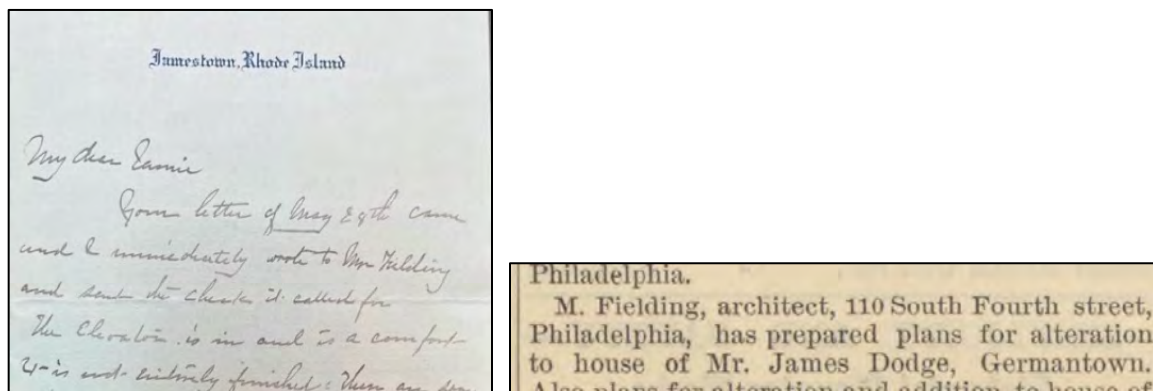 Jamestown, Rhode Island
My dear
Your letter of May 29th came
and I immediately wrote to Mr Fielding
and sent the check it called for
The Elevator is in and is a comfort
It is not entirely finished. There are
Philadelphia.
M. Fielding, architect, 110 South Fourth street,
Philadelphia, has prepared plans for alteration
to house of Mr. James Dodge, Germantown.
Also plans for alteration and addition to house of